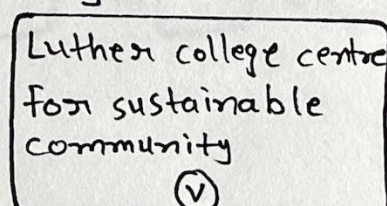 Luther college centre
for sustainable
community
V